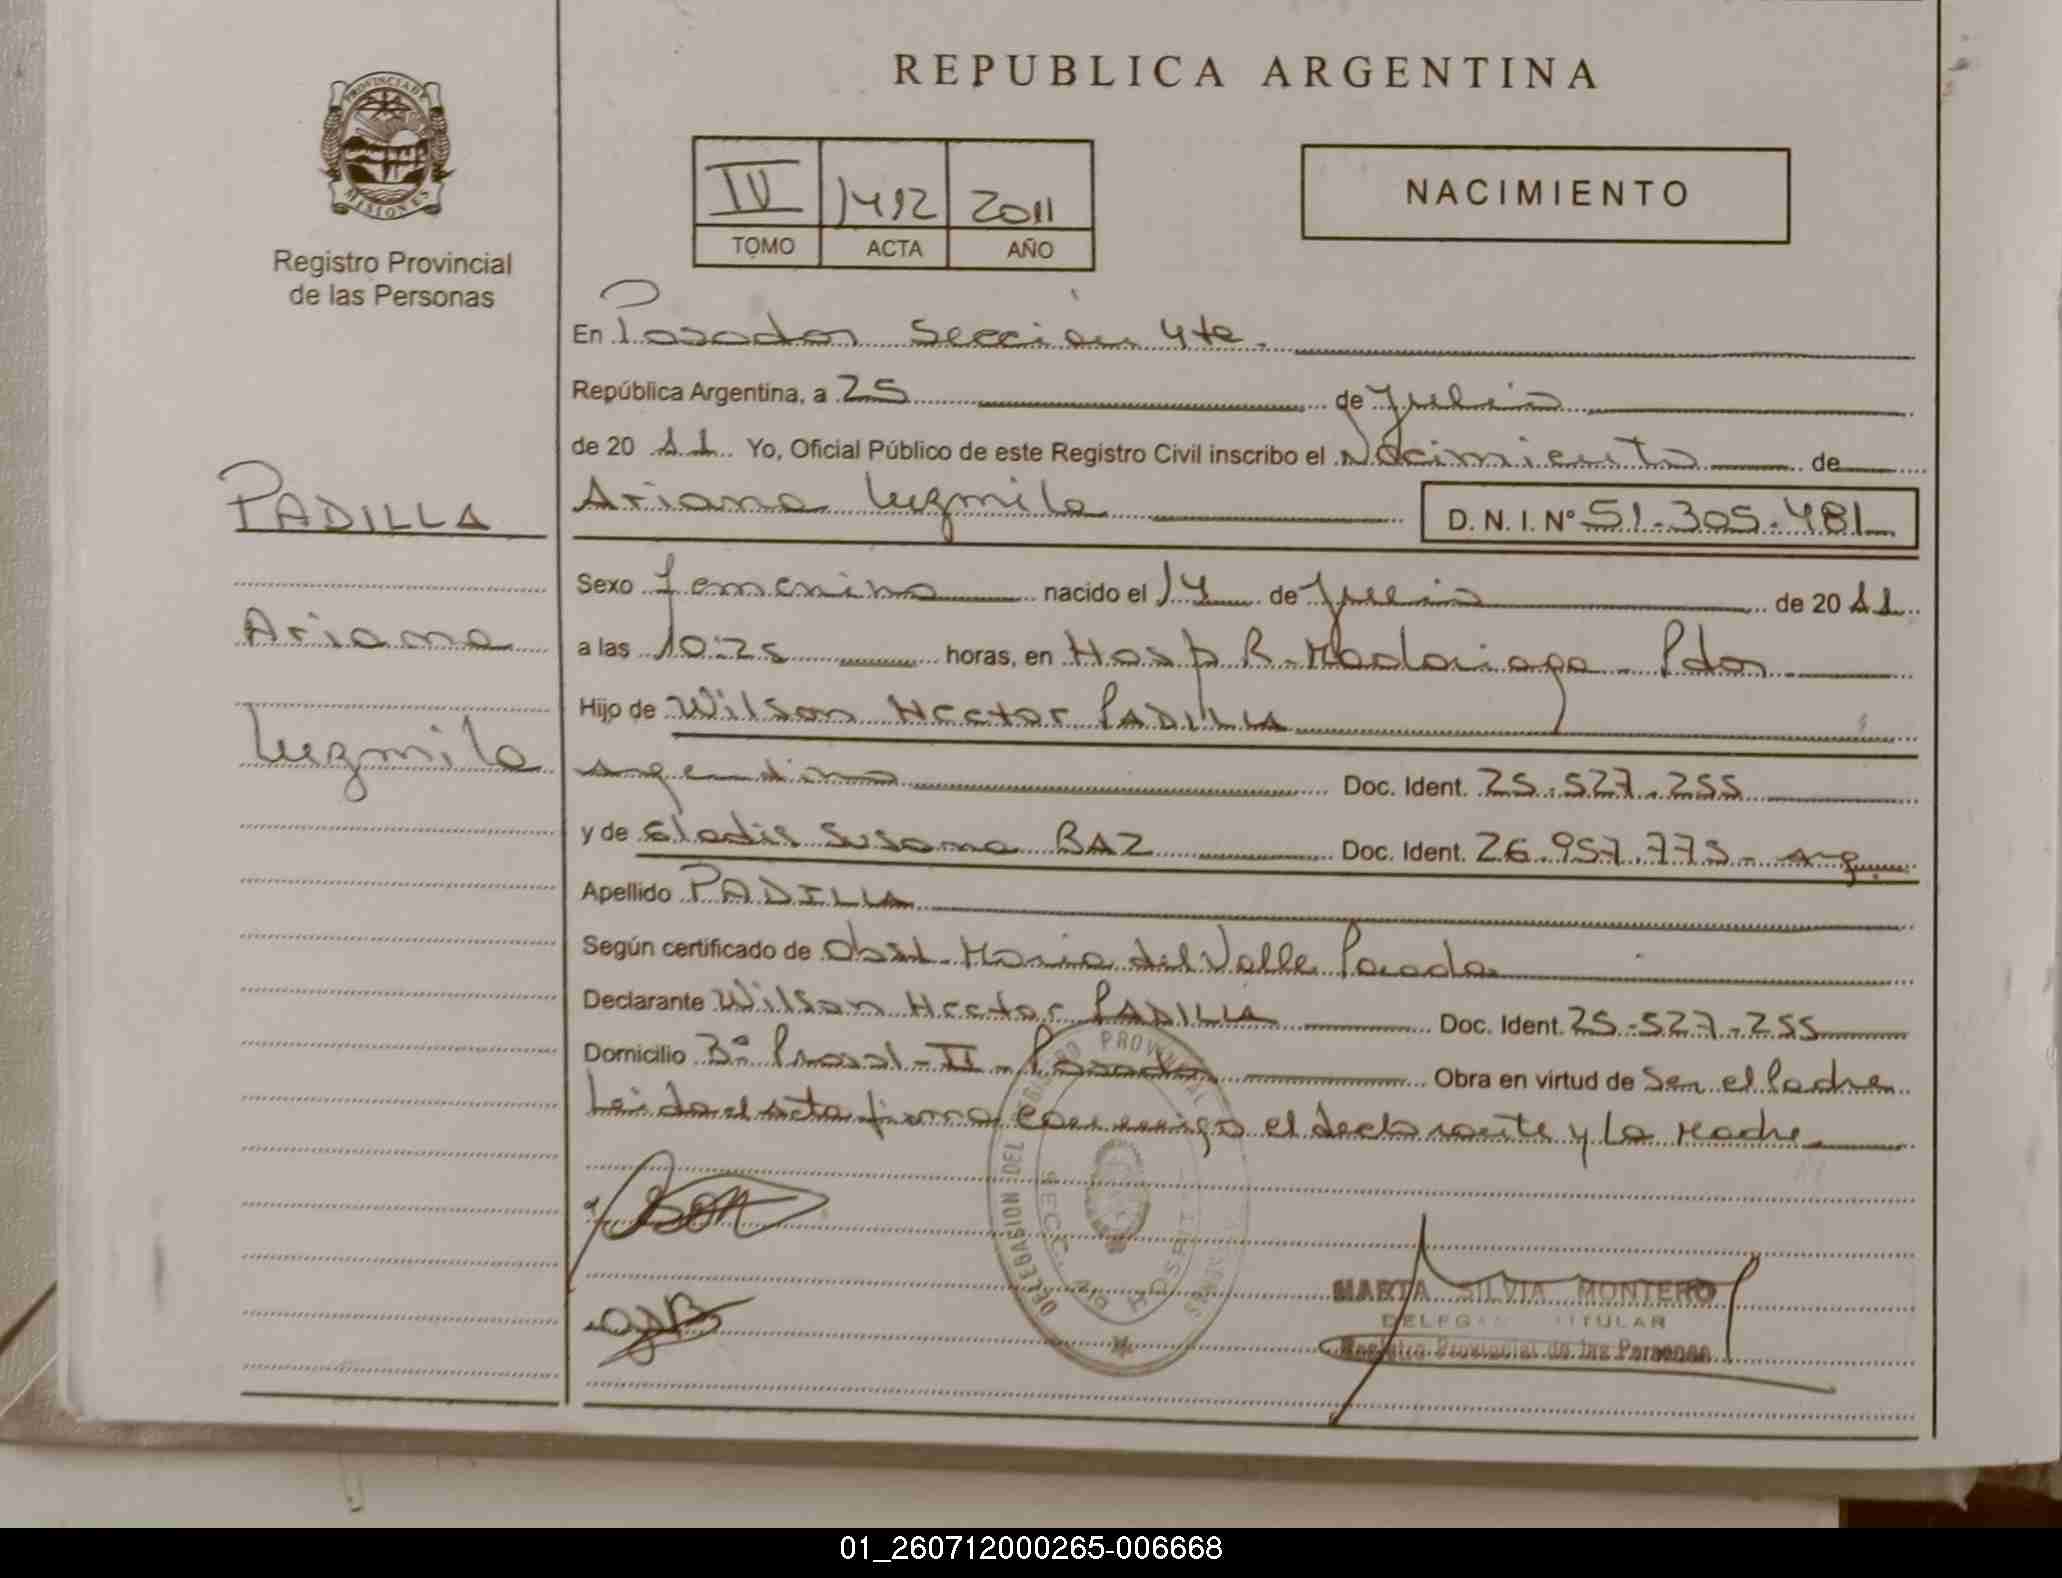 PROVINCIA DE
MISIONES
Registro Provincial
de las Personas
REPUBLICA ARGENTINA
IV 1492 2011
TOMO ACTA AÑO
NACIMIENTO
En Posadas Sección 4ta.
República Argentina, a 25 de Julio
de 20 11 Yo, Oficial Público de este Registro Civil inscribo el Nacimiento de
PADILLA
Ariana Luzmila D. N. I. Nº 51.305.481
Sexo Femenino nacido el 14 de Julio de 20 11
Ariana
a las 10:25 horas, en Hosp R. Madariaga - Pdas
Hijo de Wilson Hector PADILLA
Luzmila
Argentino Doc. Ident. 25.527.255
y de Gladis Susana BAZ Doc. Ident. 26.957.775 - Arg
Apellido PADILLA
Según certificado de Obst. Maria del Valle Parada
Declarante Wilson Hector PADILLA Doc. Ident. 25.527.255
Domicilio Bº Prosol - II - Posadas Obra en virtud de Ser el Padre
Leida el acta firma conmigo el declarante y La Madre
DELEGASION DEL REGISTRO PROVINCIAL
SECC. 4ta
MARTA SILVIA MONTERO
DELEGADA TITULAR
Registro Provincial de las Personas
01_260712000265-006668